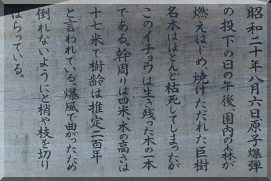 昭和二十年八月六日原子爆弾
の投下の日の午後、園内の森が
燃えはじめ、焼けただれた巨樹
名木はほとんど枯死してしまったが
このイチョウは生き残った木の一本
である。幹周りは四米、木の高さは
十七米で樹齢は推定二百年
と言われている。爆風で曲がったため
倒れないようにと梢や枝を切り
はらっている。